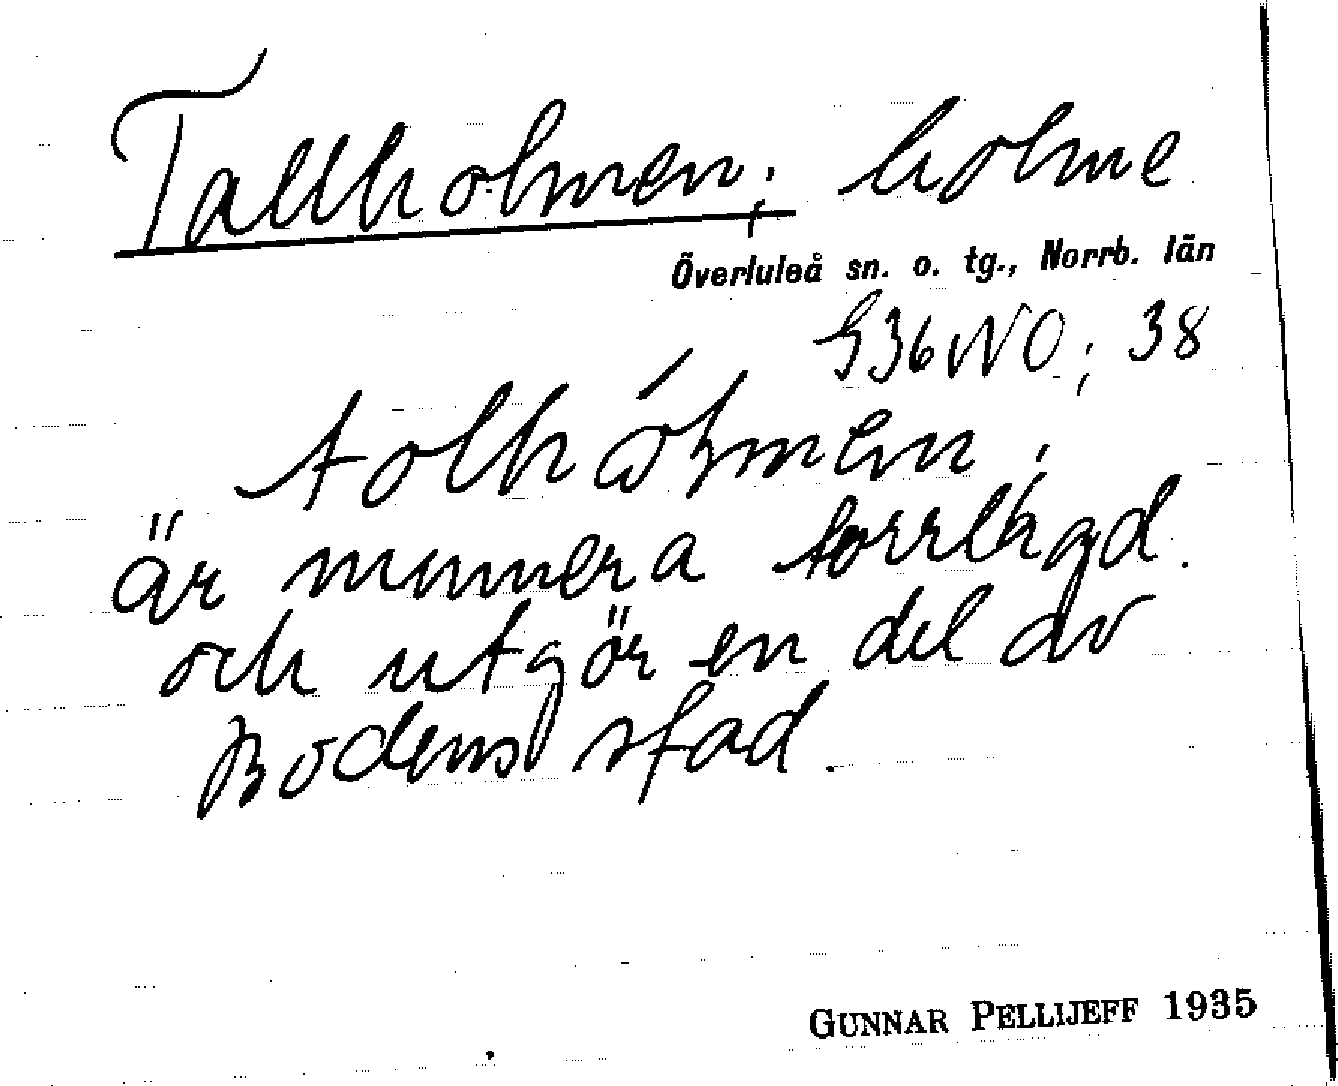 Tallholmen; holme
Överluleå sn. o. tg., Norrb. län
G36NO; 38
är numera torrlagd
och utgör en del av
Bodens stad.
GUNNAR PELLIJEFF 1935